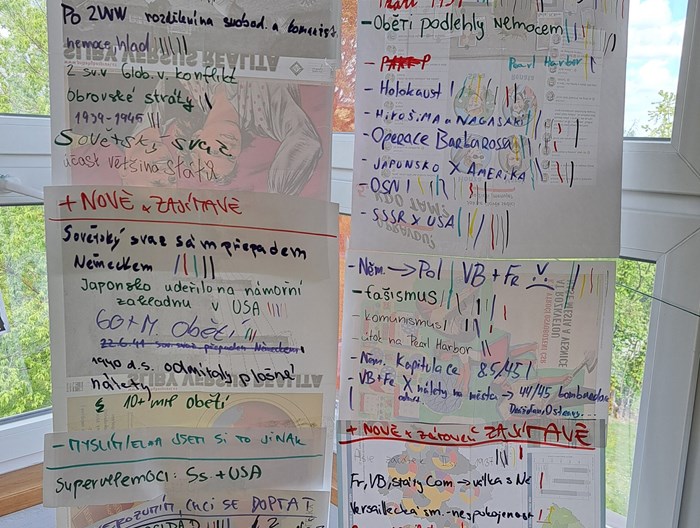 Po 2WW rozděluvina svobod. a komunist.
nemoce, hlad
SLIBY VERSUS REALITA
2 sv.v Glob. v. konflikt
obrovské ztráty
1939-1945
Sovětský svaz
účast většina států
+ NOVÉ & ZAJÍMAVÉ
Sovětský svaz sám přepadem
Německem
Japonsko udeřilo na námořní
základnu v USA
60+M. Obětí
22.6.41
1940 d.s. odmítaly plošné
nálety
10+ obětí
- MYSLIM/ELNA JSEM SI TO JINAK
Supervelemoci: Ss + USA
CHCI SE DOPTAT
- Oběti podlehly Nemocem
- Pearl Harbor
- Holokaust
- HIROŠIMA a NAGASAKI
- Operace Barbarosa
- JAPONSKO X AMERIKA
- OSN
- SSSR X USA
- Něm. → Pol VB + Fr V.
- fašismus
- komunismus
- útok na Pearl Harbor
- Něm. Kapitulace 8.5/45
- VB+Fr X nálety na města → 44/45
+ NOVÉ & zároveň ZAJÍMAVÉ
Fr, VB, státy Com → válka s Ně
Versaillecká sm. - nespokojenost